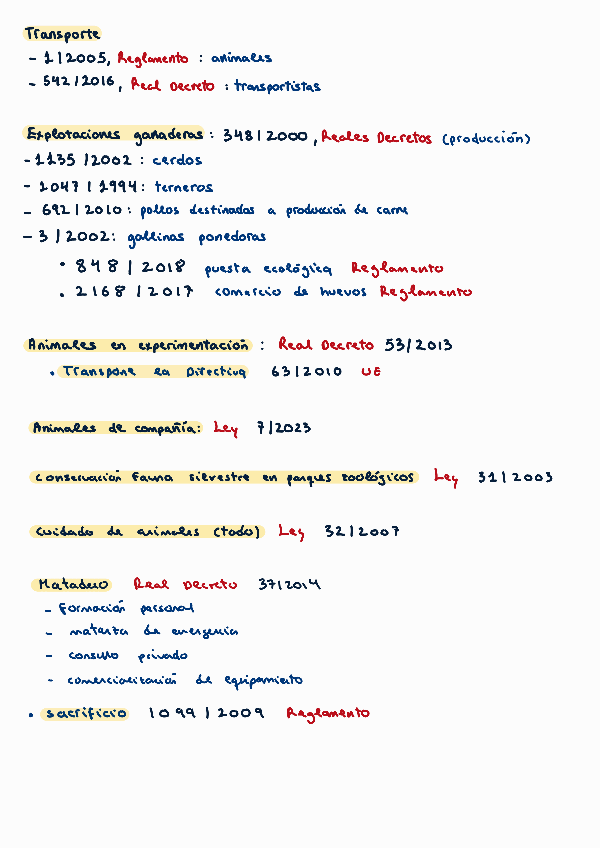 Transporte
- 1/2005, Reglamento : animales
- 542/2016, Real Decreto : transportistas
Explotaciones ganaderas : 348/2000, Reales Decretos (producción)
- 1135/2002 : cerdos
- 1047/1994 : terneros
- 692/2010 : pollos destinados a producción de carne
- 3/2002: gallinas ponedoras
• 848/2018 puesta ecológica Reglamento
• 2168/2017 comercio de huevos Reglamento
Animales en experimentación : Real Decreto 53/2013
• Transpone la Directiva 63/2010 UE
Animales de compañía: Ley 7/2023
Conservación fauna silvestre en parques zoológicos Ley 31/2003
Cuidado de animales (todo) Ley 32/2007
Matadero Real Decreto 37/2014
- Formación personal
- matanza de emergencia
- consumo privado
- comercialización de equipamiento
• Sacrificio 1099/2009 Reglamento